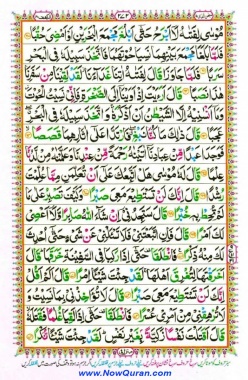 مُوْسٰى لِفَتٰىهُ لَاۤ اَبْرَحُ حَتّٰۤى اَبْلُغَ مَجْمَعَ الْبَحْرَيْنِ اَوْ اَمْضِيَ حُقُبًا
فَلَمَّا بَلَغَا مَجْمَعَ بَيْنِهِمَا نَسِيَا حُوْتَهُمَا فَاتَّخَذَ سَبِيْلَهٗ فِي الْبَحْرِ
سَرَبًا فَلَمَّا جَاوَزَا قَالَ لِفَتٰىهُ اٰتِنَا غَدَآءَنَا لَقَدْ لَقِيْنَا مِنْ سَفَرِنَا
هٰذَا نَصَبًا قَالَ اَرَءَيْتَ اِذْ اَوَيْنَاۤ اِلَى الصَّخْرَةِ فَاِنِّيْ نَسِيْتُ الْحُوْتَ
وَمَاۤ اَنْسٰىنِيْهُ اِلَّا الشَّيْطٰنُ اَنْ اَذْكُرَهٗ وَاتَّخَذَ سَبِيْلَهٗ فِي الْبَحْرِ
عَجَبًا قَالَ ذٰلِكَ مَا كُنَّا نَبْغِ فَارْتَدَّا عَلٰۤى اٰثَارِهِمَا قَصَصًا
فَوَجَدَا عَبْدًا مِّنْ عِبَادِنَاۤ اٰتَيْنٰهُ رَحْمَةً مِّنْ عِنْدِنَا وَعَلَّمْنٰهُ مِنْ لَّدُنَّا
عِلْمًا قَالَ لَهٗ مُوْسٰى هَلْ اَتَّبِعُكَ عَلٰۤى اَنْ تُعَلِّمَنِ مِمَّا عُلِّمْتَ
رُشْدًا قَالَ اِنَّكَ لَنْ تَسْتَطِيْعَ مَعِيَ صَبْرًا وَكَيْفَ تَصْبِرُ عَلٰى
مَا لَمْ تُحِطْ بِهٖ خُبْرًا قَالَ سَتَجِدُنِيْ اِنْ شَآءَ اللّٰهُ صَابِرًا وَّلَاۤ اَعْصِيْ
لَكَ اَمْرًا قَالَ فَاِنِ اتَّبَعْتَنِيْ فَلَا تَسْـَٔلْنِيْ عَنْ شَيْءٍ حَتّٰۤى اُحْدِثَ
لَكَ مِنْهُ ذِكْرًا فَانْطَلَقَا حَتّٰۤى اِذَا رَكِبَا فِي السَّفِيْنَةِ خَرَقَهَا قَالَ
اَخَرَقْتَهَا لِتُغْرِقَ اَهْلَهَا لَقَدْ جِئْتَ شَيْـًٔا اِمْرًا قَالَ اَلَمْ اَقُلْ
اِنَّكَ لَنْ تَسْتَطِيْعَ مَعِيَ صَبْرًا قَالَ لَا تُؤَاخِذْنِيْ بِمَا نَسِيْتُ وَ
لَا تُرْهِقْنِيْ مِنْ اَمْرِيْ عُسْرًا فَانْطَلَقَا حَتّٰۤى اِذَا لَقِيَا غُلٰمًا فَقَتَلَهٗ
قَالَ اَقَتَلْتَ نَفْسًا زَكِيَّةًۢ بِغَيْرِ نَفْسٍ لَقَدْ جِئْتَ شَيْـًٔا نُّكْرًا
www.NowQuran.com